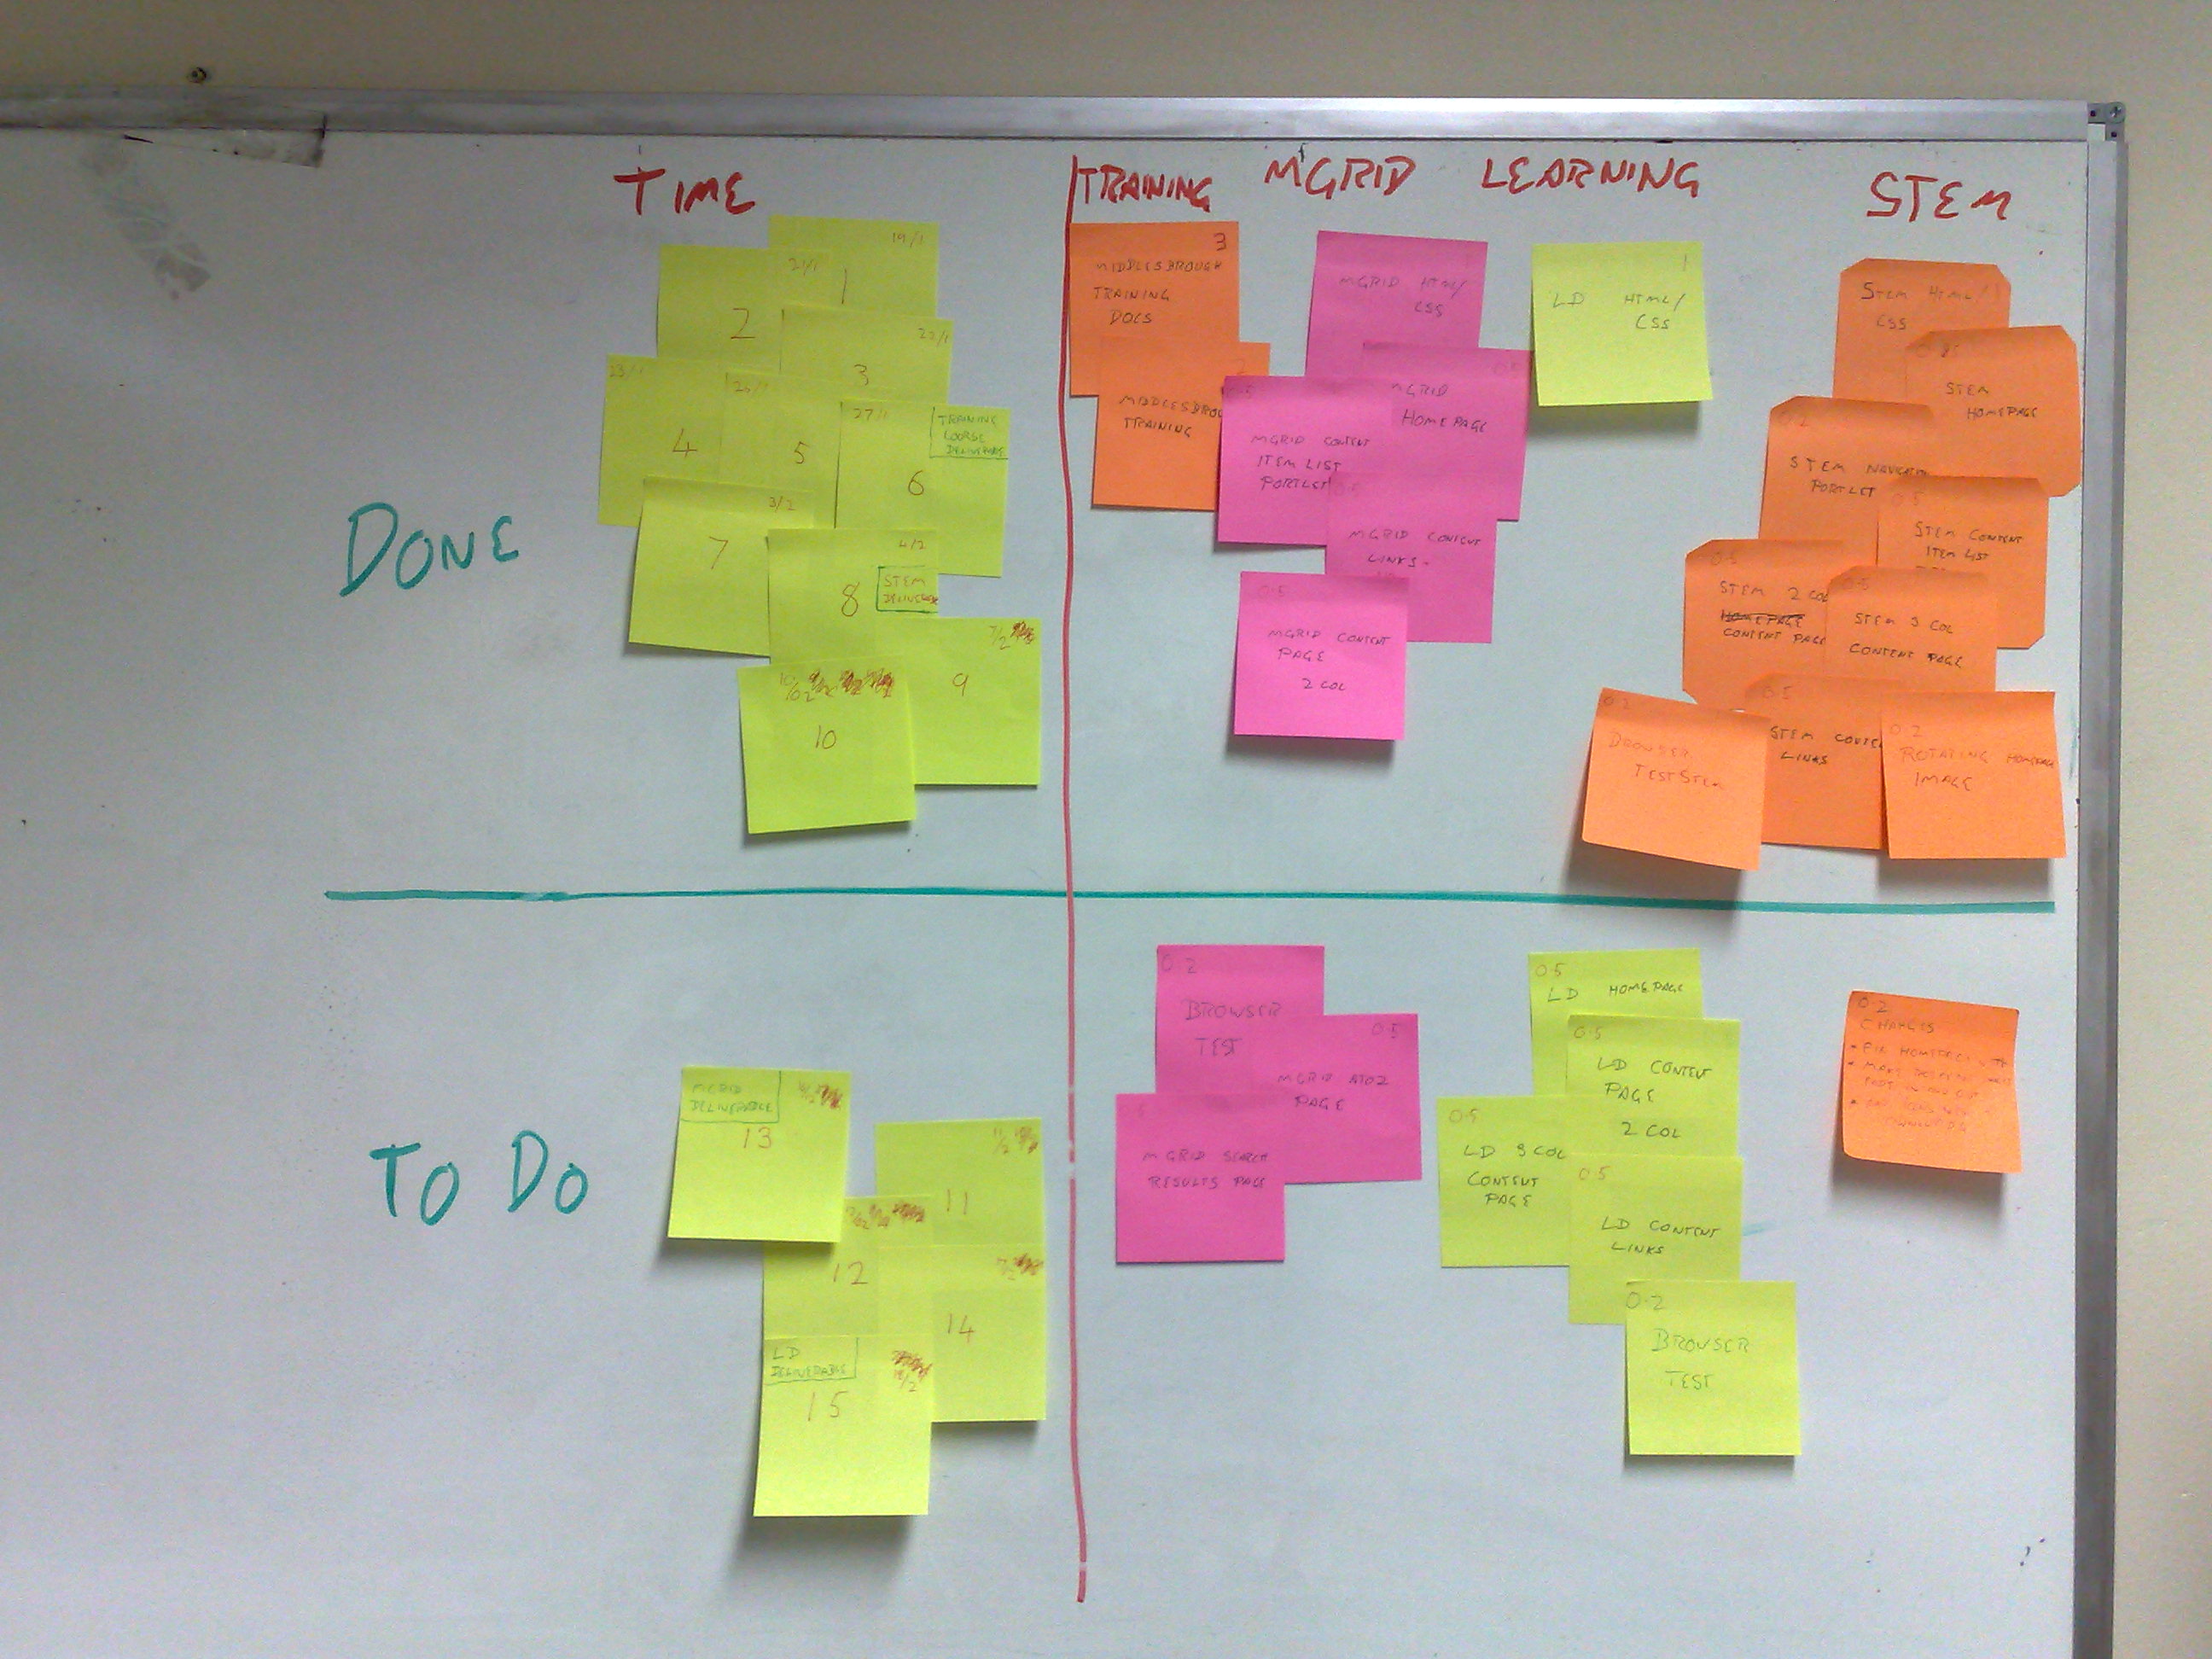 TIME
TRAINING
MGRID
LEARNING
STEM
DONE
19/1
1
21/1
2
22/1
3
23/1
4
26/1
5
27/1
TRAINING
COURSE
DELIVERABLE
6
3/2
7
4/2
STEM
DELIVERABLE
8
7/2
9
10/02
10
3
MIDDLESBROUGH
TRAINING
DOCS
2
MIDDLESBROU
TRAINING
MGRID HTML/
CSS
0.5
MGRID
HOMEPAGE
0.5
MGRID CONTENT
ITEM LIST
PORTLET
0.5
MGRID CONTENT
LINKS
0.5
MGRID CONTENT
PAGE
2 COL
1
LD HTML/
CSS
STEM HTML/
CSS
STEM
HOMEPAGE
0.2
STEM NAVIGATI
PORTLET
0.5
STEM CONTENT
ITEM LIST
0.5
STEM 2 COL
CONTENT PAGE
0.5
STEM 3 COL
CONTENT PAGE
0.2
BROWSER
TEST STEM
0.5
STEM CONTE
LINKS
0.2
ROTATING HOMEPAGE
IMAGE
TO DO
MGRID
DELIVERABLE
13
11/2
11
12
14
LD
DELIVERABLE
15
0.2
BROWSER
TEST
0.5
MGRID ATOZ
PAGE
MGRID SEARCH
RESULTS PAGE
0.5
LD HOMEPAGE
0.5
LD CONTENT
PAGE
2 COL
0.5
LD 3 COL
CONTENT
PAGE
0.5
LD CONTENT
LINKS
0.2
BROWSER
TEST
0.2
CHANGES